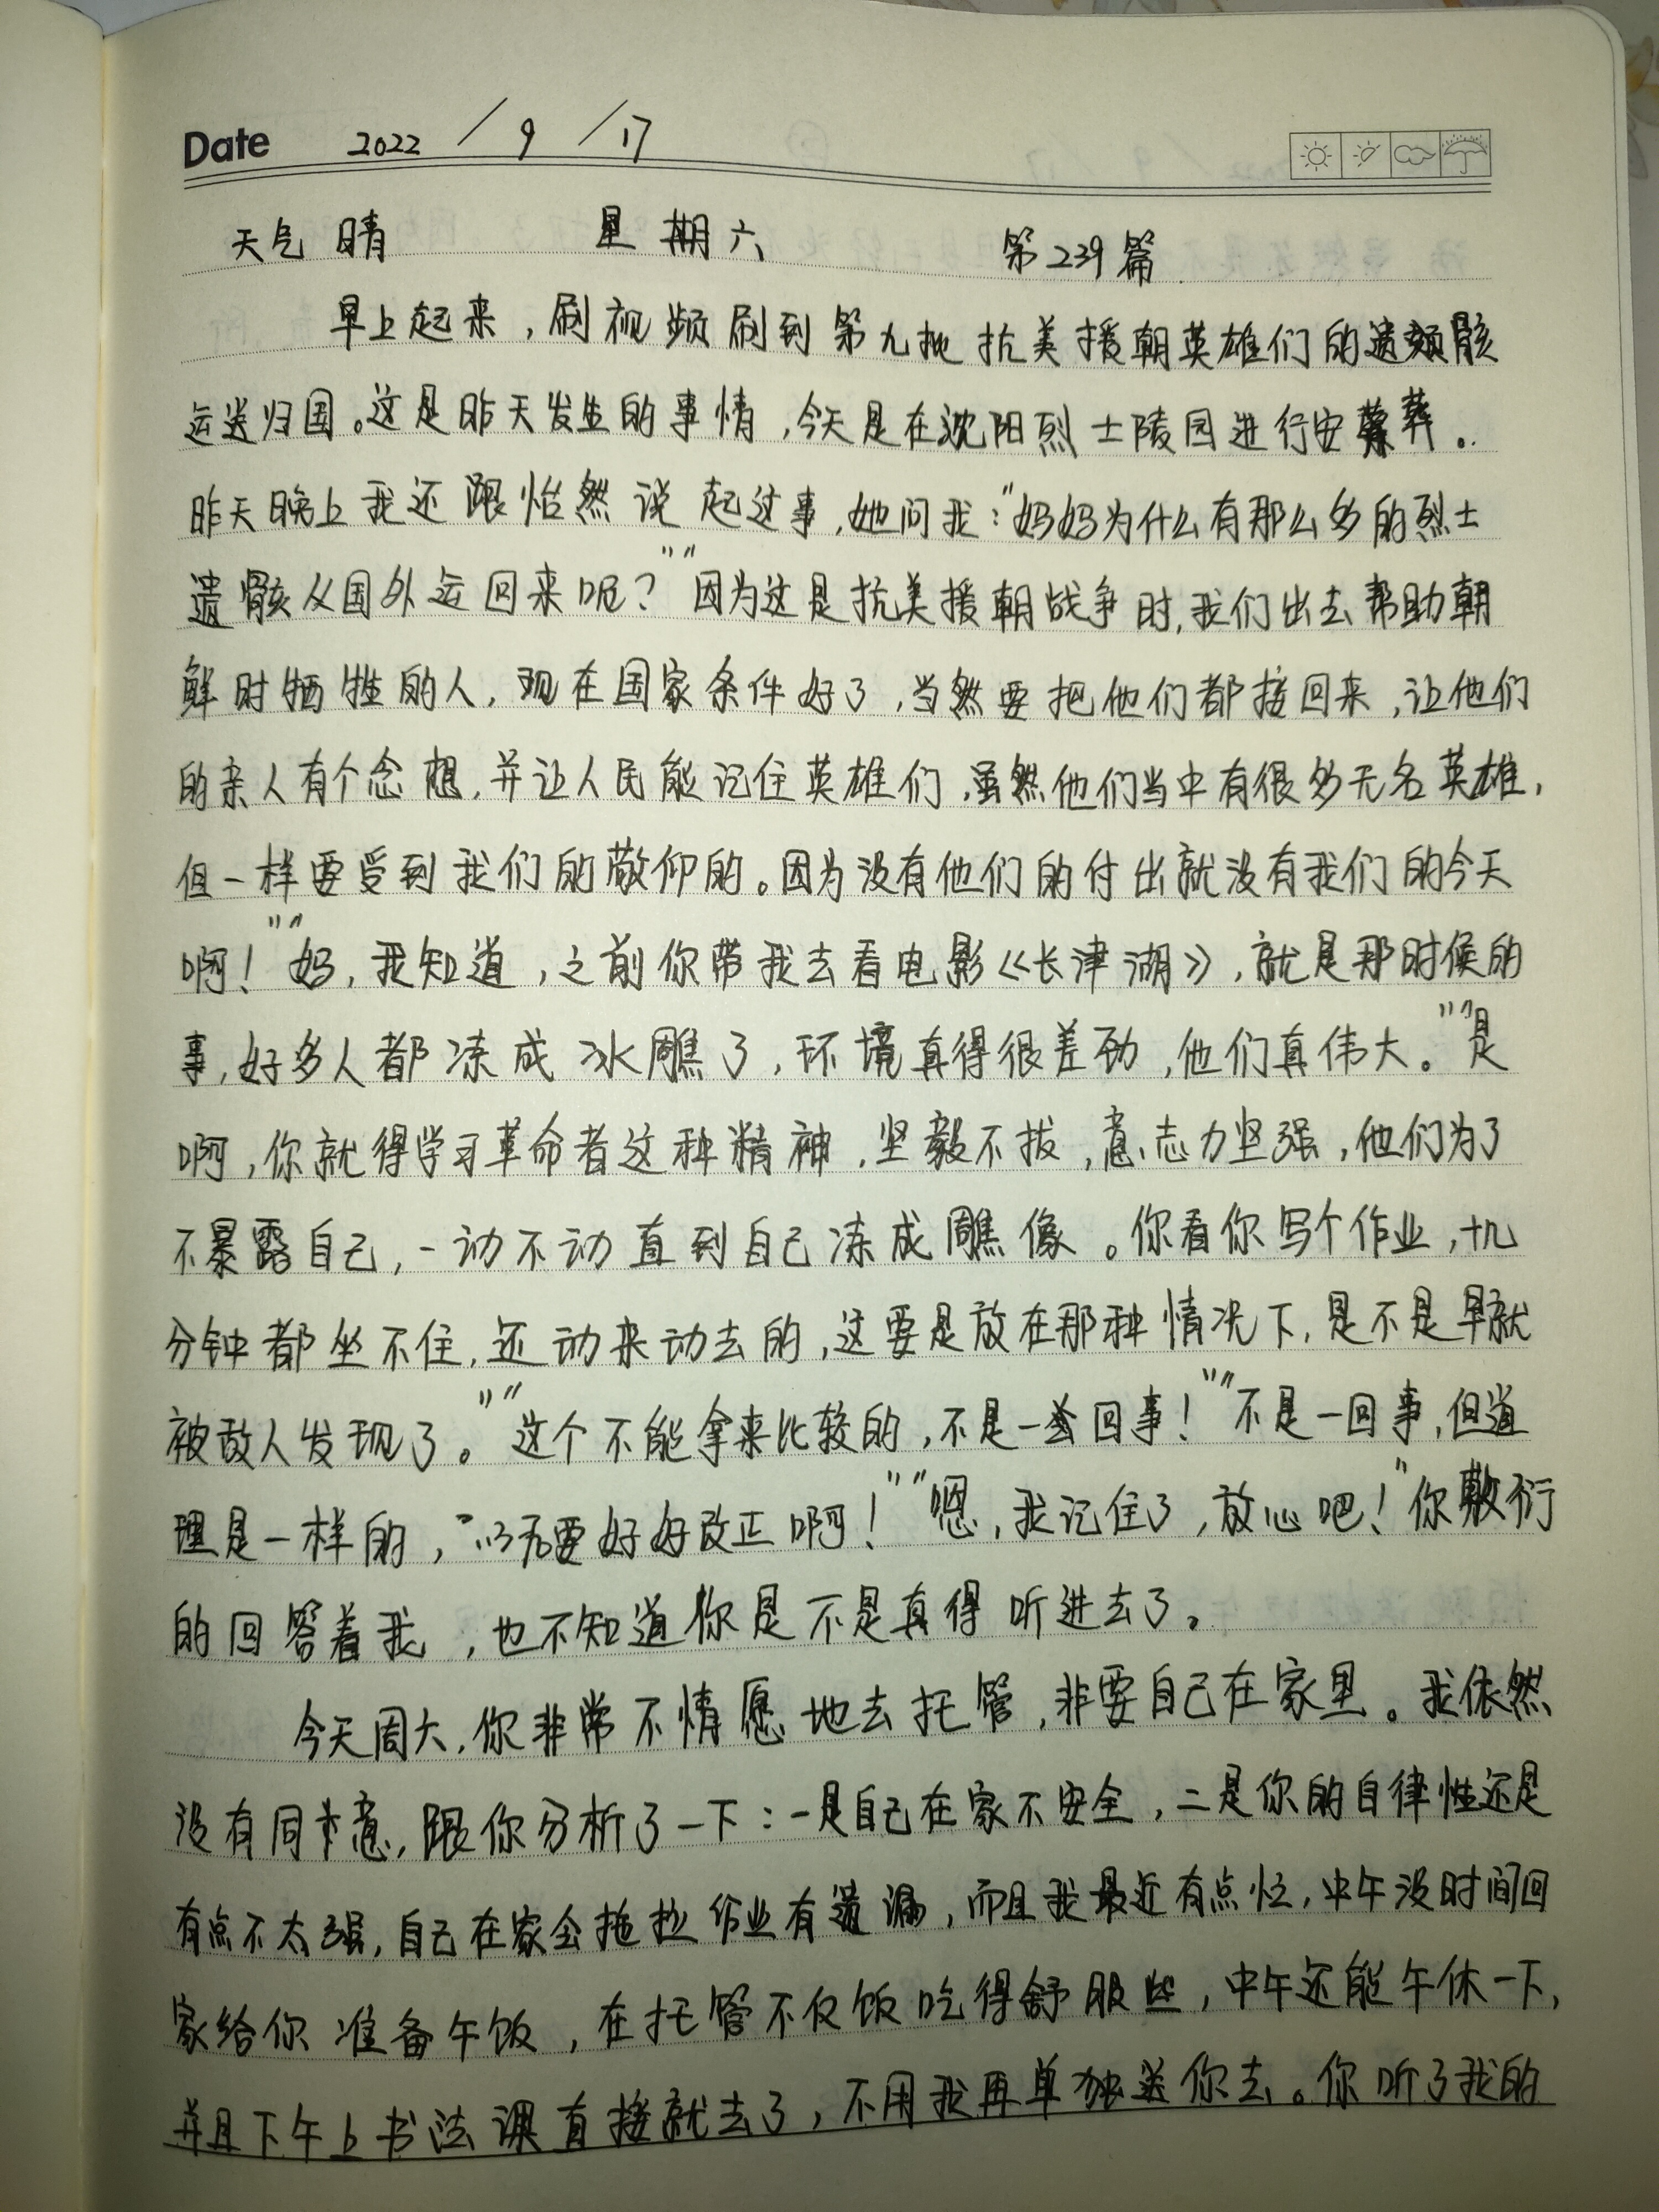 Date 2022 / 9 / 17
天气 晴 星期六 第239篇
早上起来，刷视频刷到第九批抗美援朝英雄们的遗骸
运送归国。这是昨天发生的事情，今天是在沈阳烈士陵园进行安葬。
昨天晚上我还跟怡然说起这事，她问我：“妈妈为什么有那么多的烈士
遗骸从国外运回来呢？”“因为这是抗美援朝战争时，我们出去帮助朝
鲜时牺牲的人，现在国家条件好了，当然要把他们都接回来，让他们
的亲人有个念想，并让人民能记住英雄们，虽然他们当中有很多无名英雄，
但一样要受到我们的敬仰的。因为没有他们的付出就没有我们的今天
啊！”“妈，我知道，之前你带我去看电影《长津湖》，就是那时候的
事，好多人都冻成冰雕了，环境真得很差劲，他们真伟大。”“是
啊，你就得学习革命者这种精神，坚毅不拔，意志力坚强，他们为了
不暴露自己，一动不动直到自己冻成雕像。你看你写个作业，十几
分钟都坐不住，还动来动去的，这要是放在那种情况下，是不是早就
被敌人发现了。”“这个不能拿来比较的，不是一回事！”“不是一回事，但道
理是一样的，所以要好好改正啊！”“嗯，我记住了，放心吧！”你敷衍
的回答着我，也不知道你是不是真得听进去了。
今天周六，你非常不情愿地去托管，非要自己在家里。我依然
没有同意，跟你分析了一下：一是自己在家不安全，二是你的自律性还是
有点不太强，自己在家会拖拉作业有遗漏，而且我最近有点忙，中午没时间回
家给你准备午饭，在托管不仅饭吃得舒服些，中午还能午休一下，
并且下午上书法课直接就去了，不用我再单独送你去。你听了我的